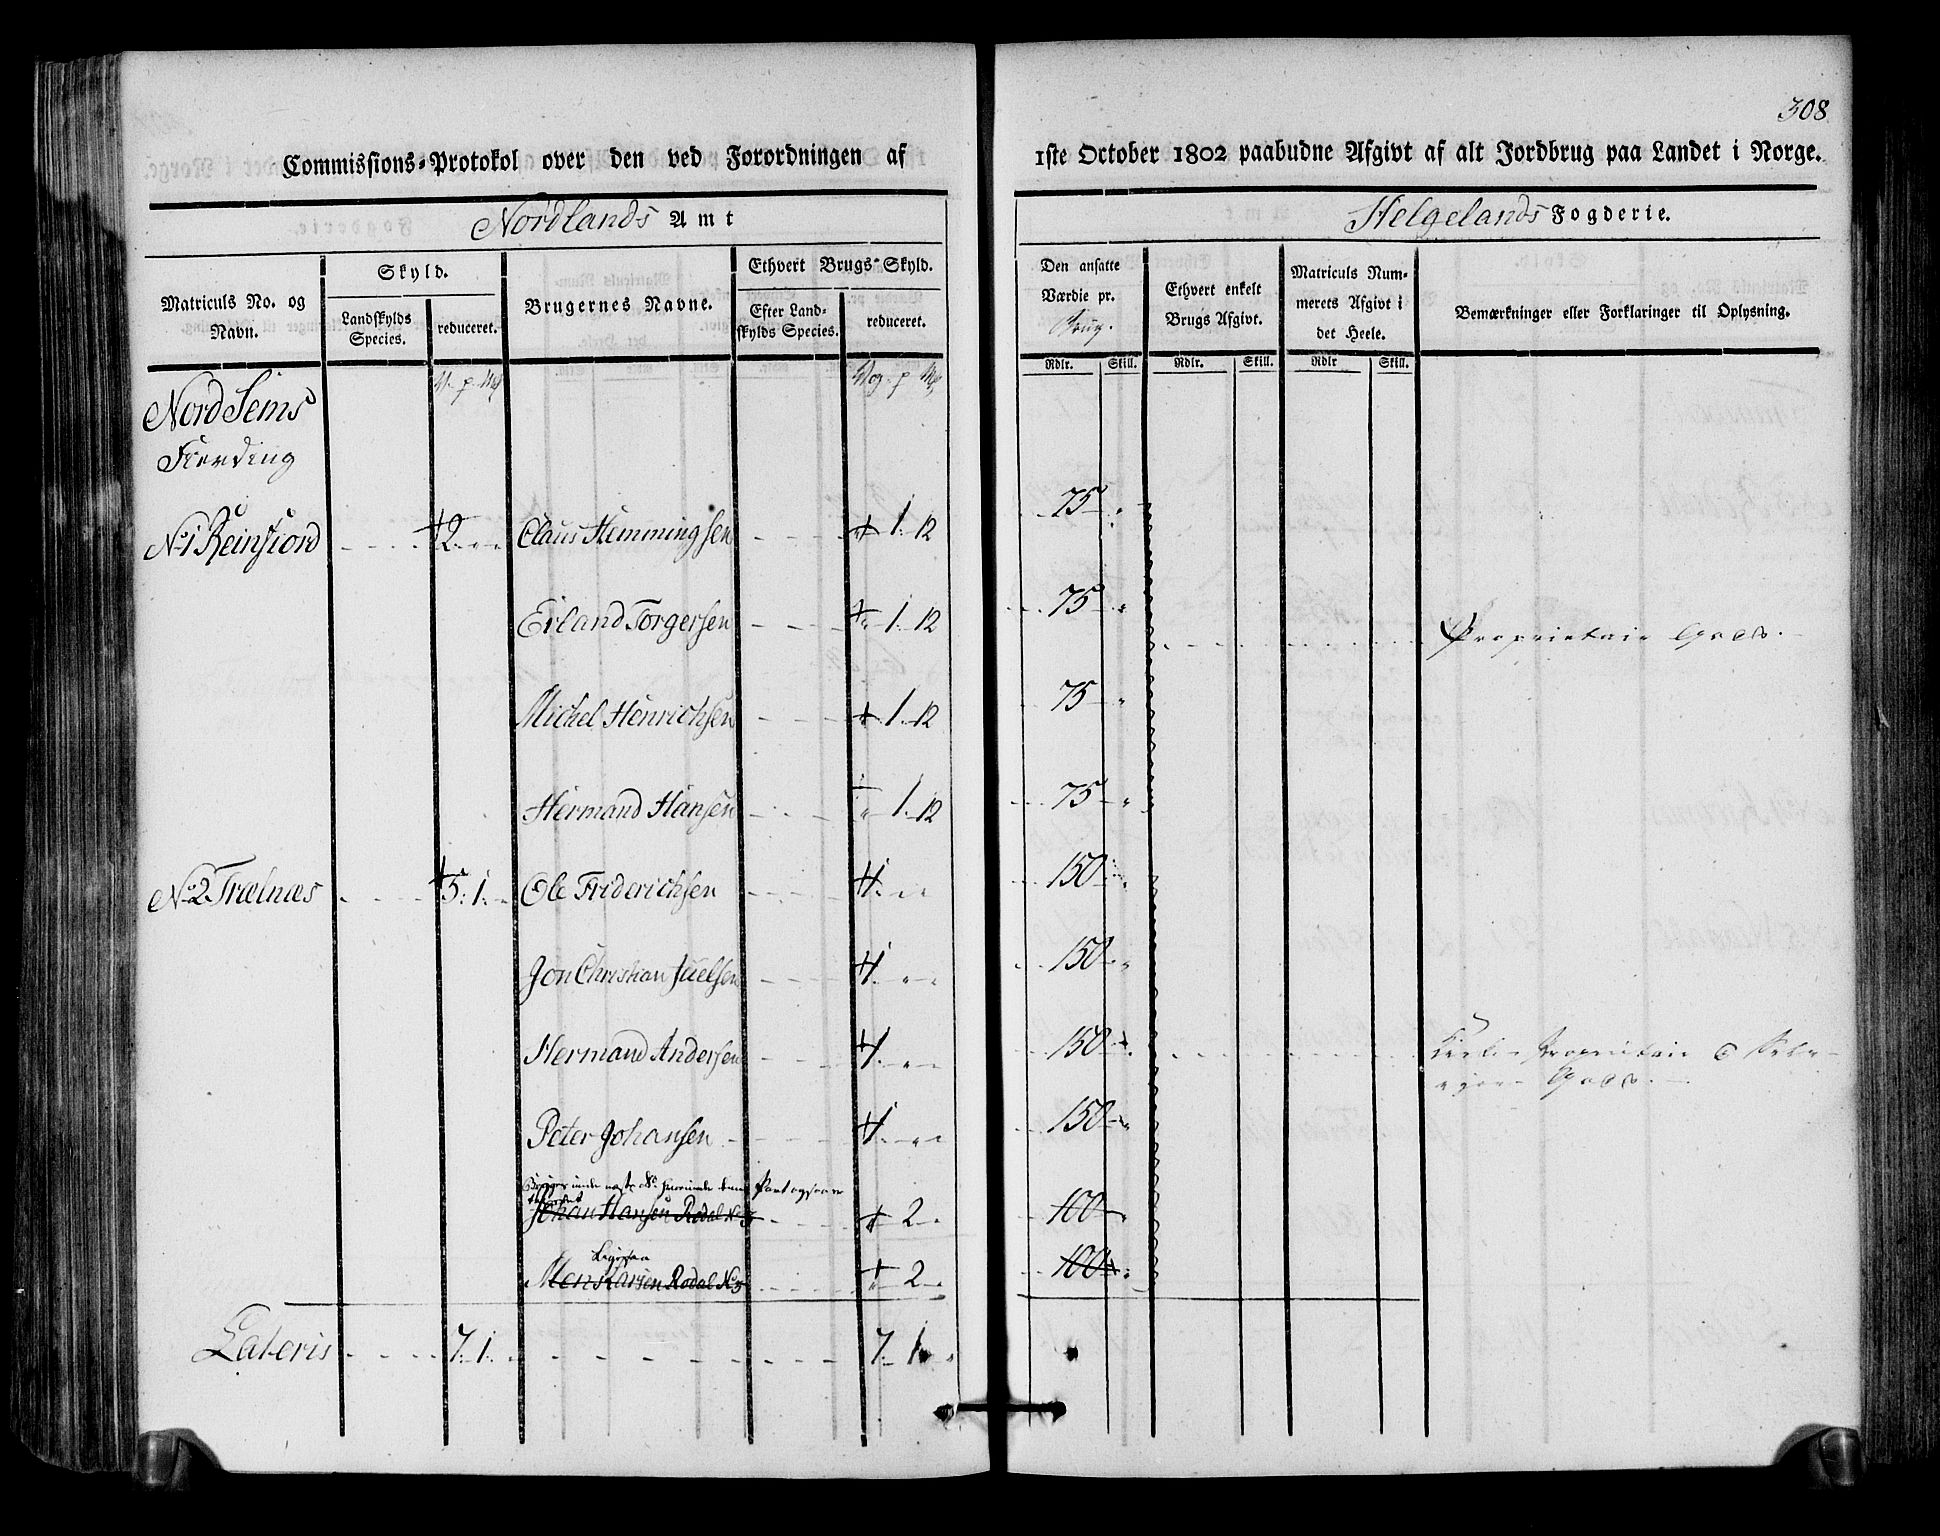 308
Commissions-Protokol over den ved Forordningen af 1ste October 1802 paabudne Afgivt af alt Jordbrug paa Landet i Norge.
Nordlands Amt
Helgelands Fogderie.
Matriculs No. og Navn.
Skyld.
Landskylds Species.
reduceret.
Brugernes Navne.
Ethvert Brugs-Skyld.
Efter Landskylds Species.
reduceret.
Den ansatte Værdie pr. Brug.
Rdlr. Skill.
Ethvert enkelt Brugs Afgivt.
Rdlr. Skill.
Matriculs Nummerets Afgivt i det Heele.
Rdlr Skill.
Bemærkninger eller Forklaringer til Oplysning.
Nord Sems
Fierding
No 1 Reinfiord 2 Claus Hemmingsen 1. 12 75
Erland Torgersen 1. 12 75 Proprietair Gods.
Michel Henrichsen 1. 12 75
Hermand Hansen 1. 12 75
No 2 Trælnæs 5. 1. Ole Friderichsen 1. 150
Jon Christian Juelsen 1. 150
Hermand Andersen 1. 150 Proprietair
Gods.
Peter Johansen 1. 150
Johan Hansen Rodal No 3 2 100
Ligesaa
Rodal No 3 2 100
Lateris 7. 1. 7. 1